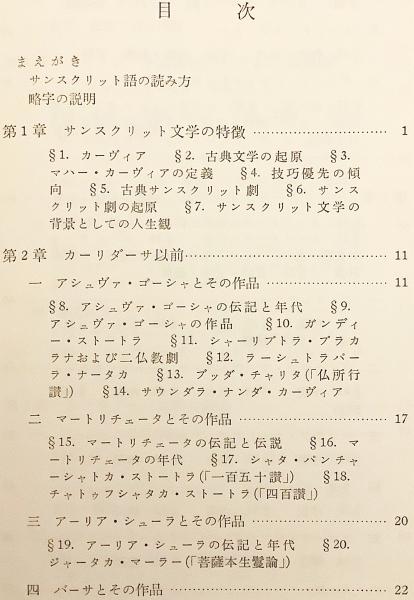 目 次
まえがき
サンスクリット語の読み方
略字の説明
第1章 サンスクリット文学の特徴 …………………… 1
§1. カーヴィア §2. 古典文学の起原 §3.
マハー・カーヴィアの定義 §4. 技巧優先の傾
向 §5. 古典サンスクリット劇 §6. サンス
クリット劇の起原 §7. サンスクリット文学の
背景としての人生観
第2章 カーリダーサ以前…………………………… 11
一 アシュヴァ・ゴーシャとその作品 ……………… 11
§8. アシュヴァ・ゴーシャの伝記と年代 §9.
アシュヴァ・ゴーシャの作品 §10. ガンディ
ー・ストートラ §11. シャーリプトラ・プラカ
ラナおよび二仏教劇 §12. ラーシュトラパー
ラ・ナータカ §13. ブッダ・チャリタ(「仏所行
讃」) §14. サウンダラ・ナンダ・カーヴィア
二 マートリチェータとその作品 …………………… 17
§15. マートリチェータの伝記と伝説 §16. マ
ートリチェータの年代 §17. シャタ・パンチャ
ーシャトカ・ストートラ(「一百五十讃」) §18.
チャトゥフシャタカ・ストートラ(「四百讃」)
三 アーリア・シューラとその作品 ………………… 20
§19. アーリア・シューラの伝記と年代 §20.
ジャータカ・マーラー(「菩薩本生鬘論」)
四 バーサとその作品 ……………………………… 22